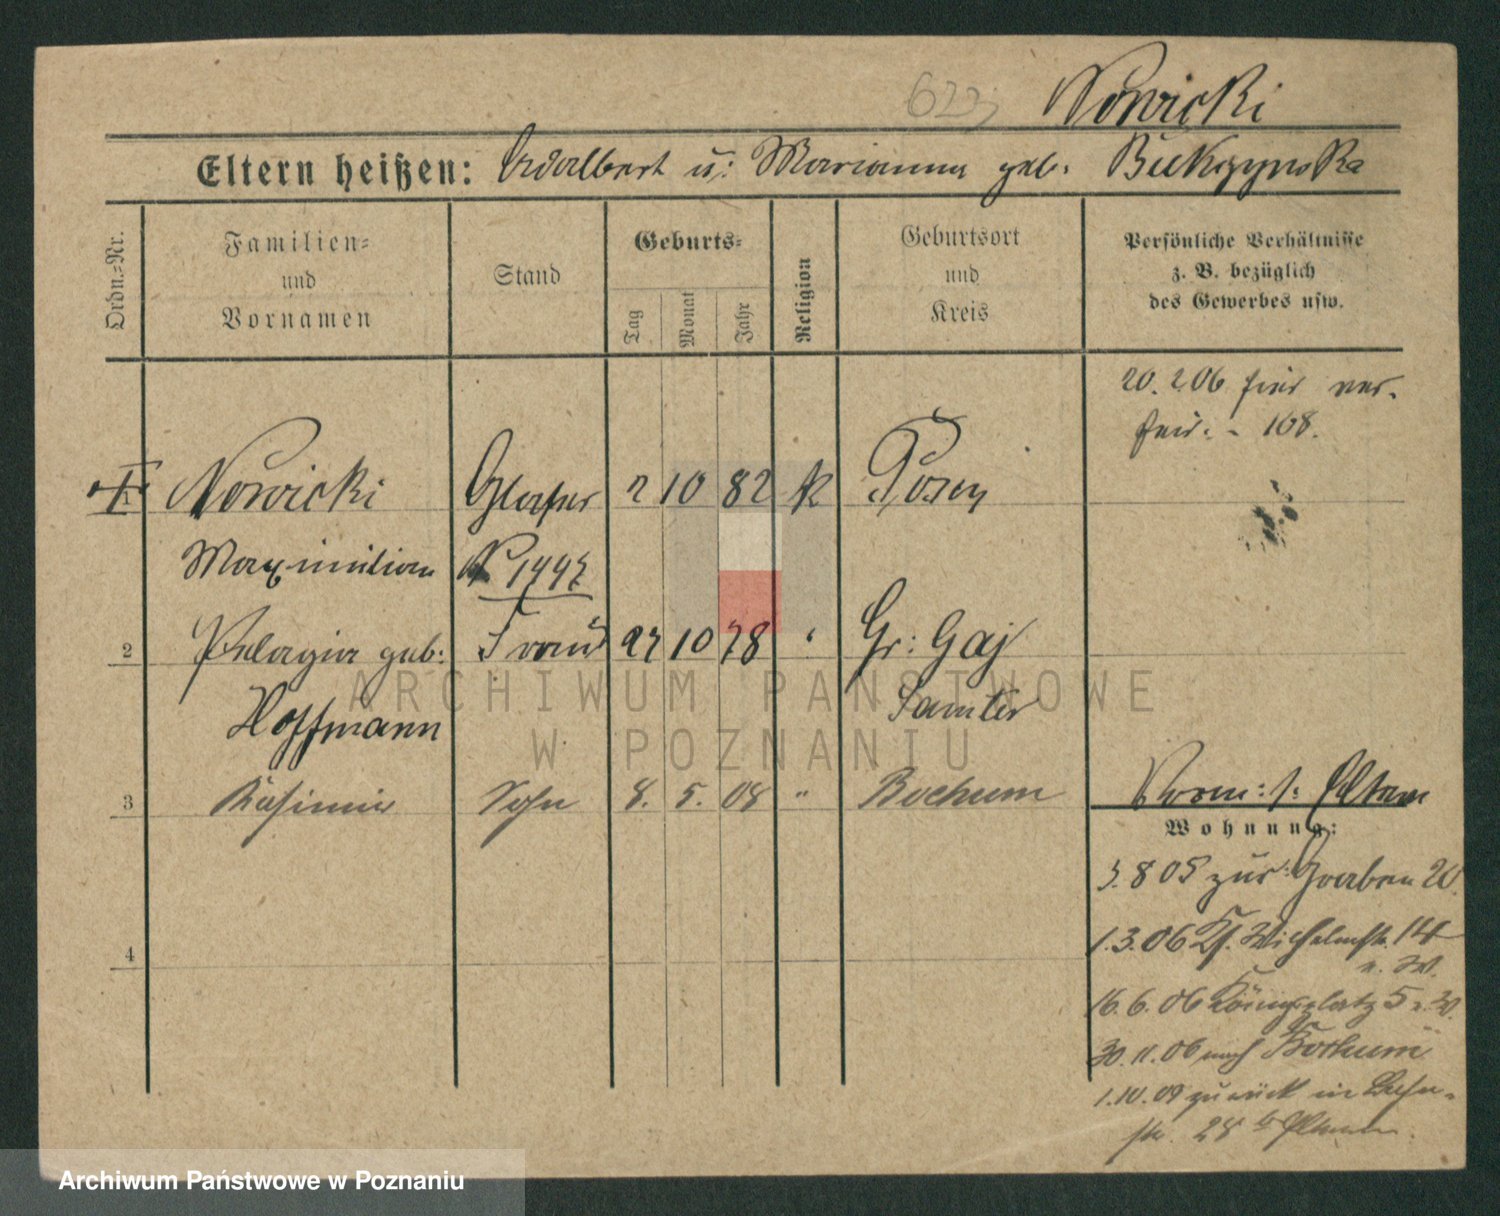 623
Nowicki
Eltern heißen: Adalbert u: Marianna geb.
Ordn.-Nr.
Familien- und Vornamen
Stand
Geburts-
Tag
Monat
Jahr
Religion
Geburtsort und Kreis
Persönliche Verhältnisse z. B. bezüglich des Gewerbes usw.
20. 2 06 hier ver-
heir. - 168.
1 Nowicki Glaser 2 10 82 k Posen
Maximilian
2 Pelagia geb: Frau 27 10 78 " Gr: Gaj
Hoffmann Samter
3 Kasimir Sohn 8. 5. 08 " Bochum
4
Wohnung:
3. 8 05 zur: Graben 20.
1. 3. 06 Wilhelmstr. 14
n. W.
16. 6. 06 Königsplatz 5 n. W.
30. 11. 06 nach Bochum
1. 10. 09 zurück in
str. 28 b Eltern
ARCHIWUM PAŃSTWOWE
W POZNANIU
Archiwum Państwowe w Poznaniu